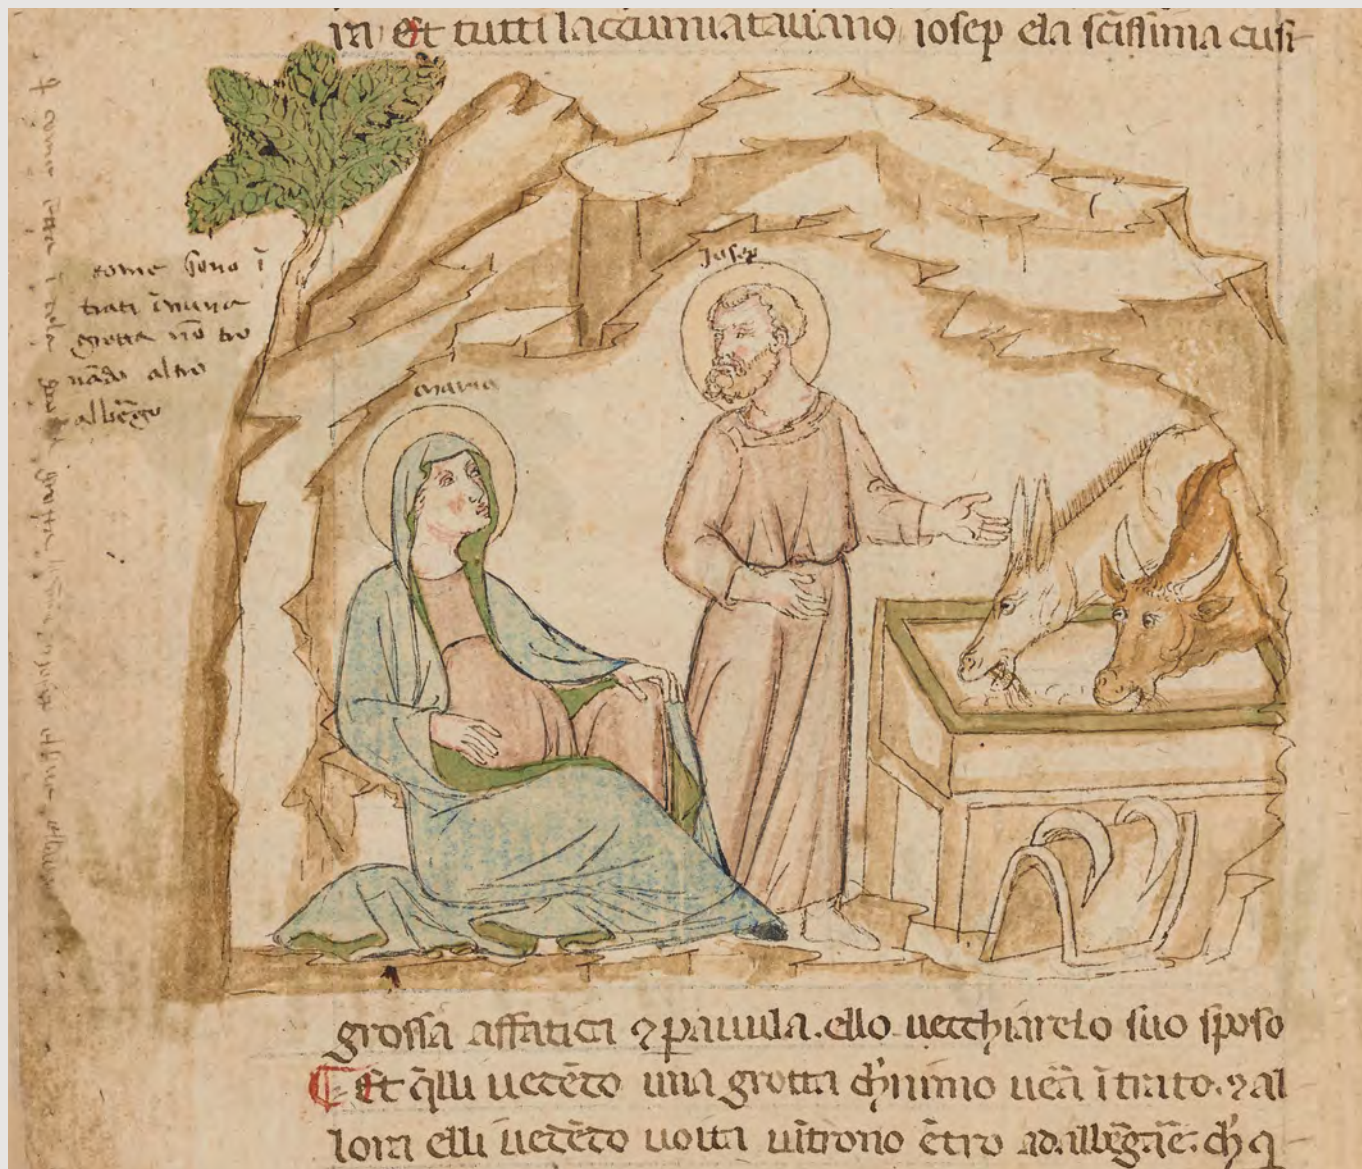 ra Et tutti laccumiatauano iosep ela sc̄issima cusi
Iosep
come sono ī
trati ī nuna
grotta nō tro
uādo altro
albēgo
maria
grossa affatica ⁊ pauula. ello uecchiarelo suo sposo
¶ Et q̄lli uedēdo una grotta ch̄ nimo uēa ītrato. ⁊ al
lora elli uedēdo uoita uītrono ētro ad albēgāe. ch̄ q